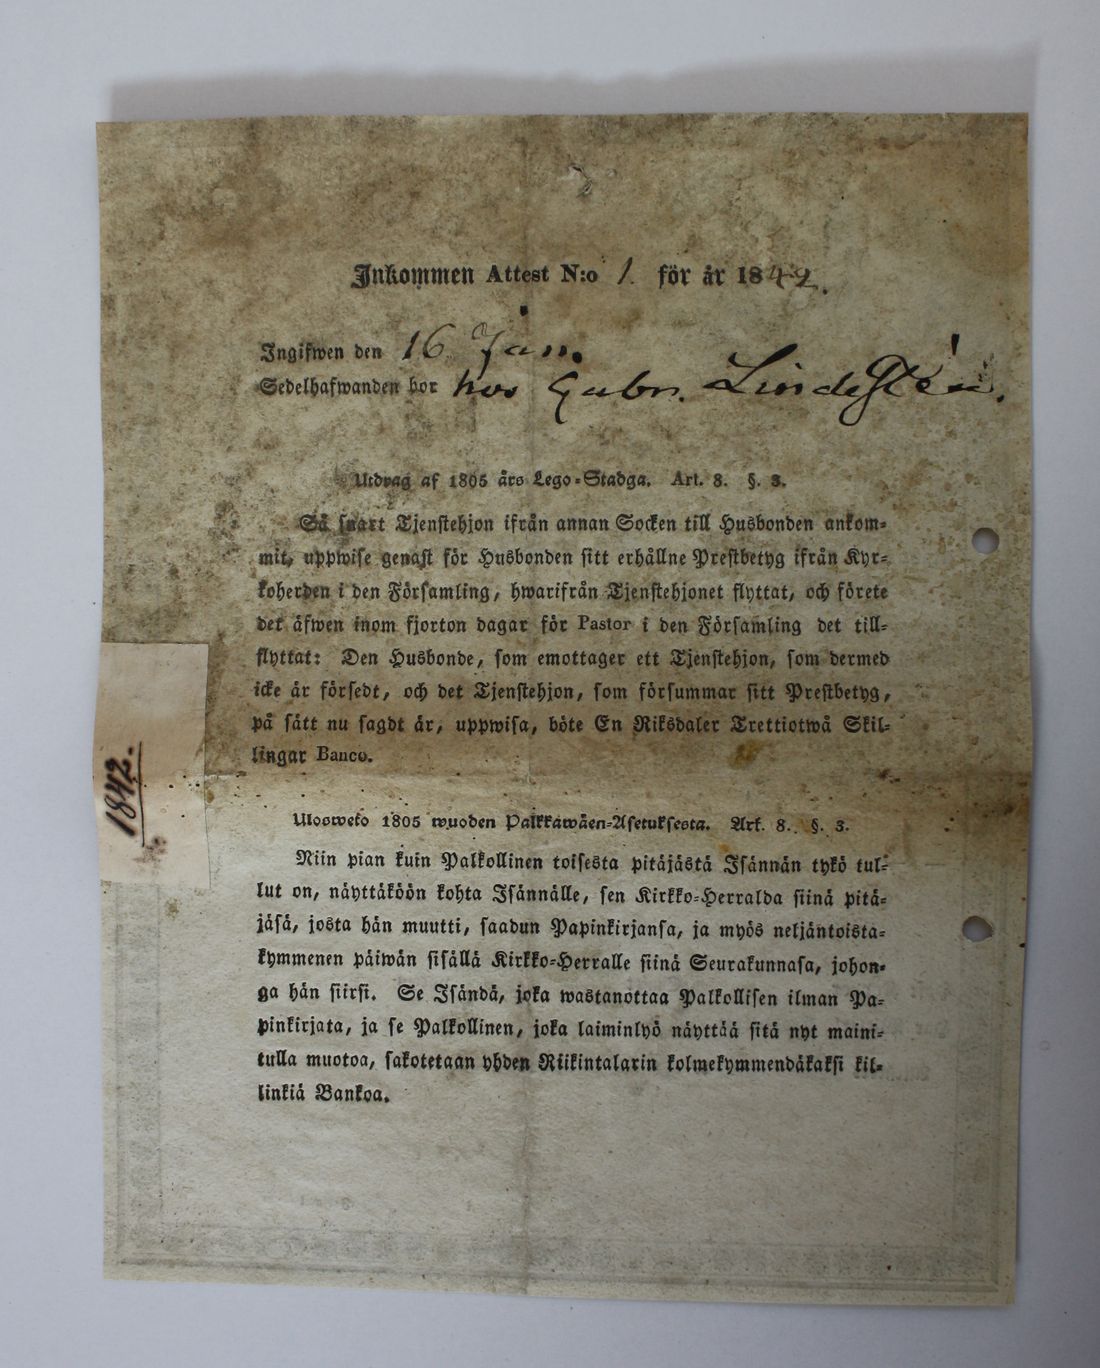 Inkommen Attest N:o 1. för år 1842.
Ingifwen den 16 Jan.
Sedelhafwanden bor hos Gubn. Lindestén.
Utdrag af 1805 års Lego-Stadga. Art. 8. §. 3.
Så snart Tjenstehjon ifrån annan Socken till Husbonden ankom-
mit, uppwise genast för Husbonden sitt erhållne Prestbetyg ifrån Kyr-
koherden i den Församling, hwarifrån Tjenstehjonet flyttat, och förete
det äfwen inom fjorton dagar för Pastor i den Församling det till-
flyttat: Den Husbonde, som emottager ett Tjenstehjon, som dermed
icke är försedt, och det Tjenstehjon, som försummar sitt Prestbetyg,
på sätt nu sagdt är, uppwisa, böte En Riksdaler Trettiotwå Skil-
lingar Banco.
1842.
Ulosweto 1805 wuoden Palkkawäen-Asetuksesta. Art. 8. §. 3.
Niin pian kuin Palkollinen toisesta pitäjästä Isännän tykö tul-
lut on, näyttäköön kohta Isännälle, sen Kirkko-Herralda siinä pitä-
jäsä, josta hän muutti, saadun Papinkirjansa, ja myös neljäntoista-
kymmenen päiwän sisällä Kirkko-Herralle siinä Seurakunnasa, johon-
ga hän siirsi. Se Isändä, joka wastanottaa Palkollisen ilman Pa-
pinkirjata, ja se Palkollinen, joka laiminlyö näyttää sitä nyt maini-
tulla muotoa, sakotetaan yhden Riikintalarin kolmekymmendäkaksi kil-
linkiä Bankoa.